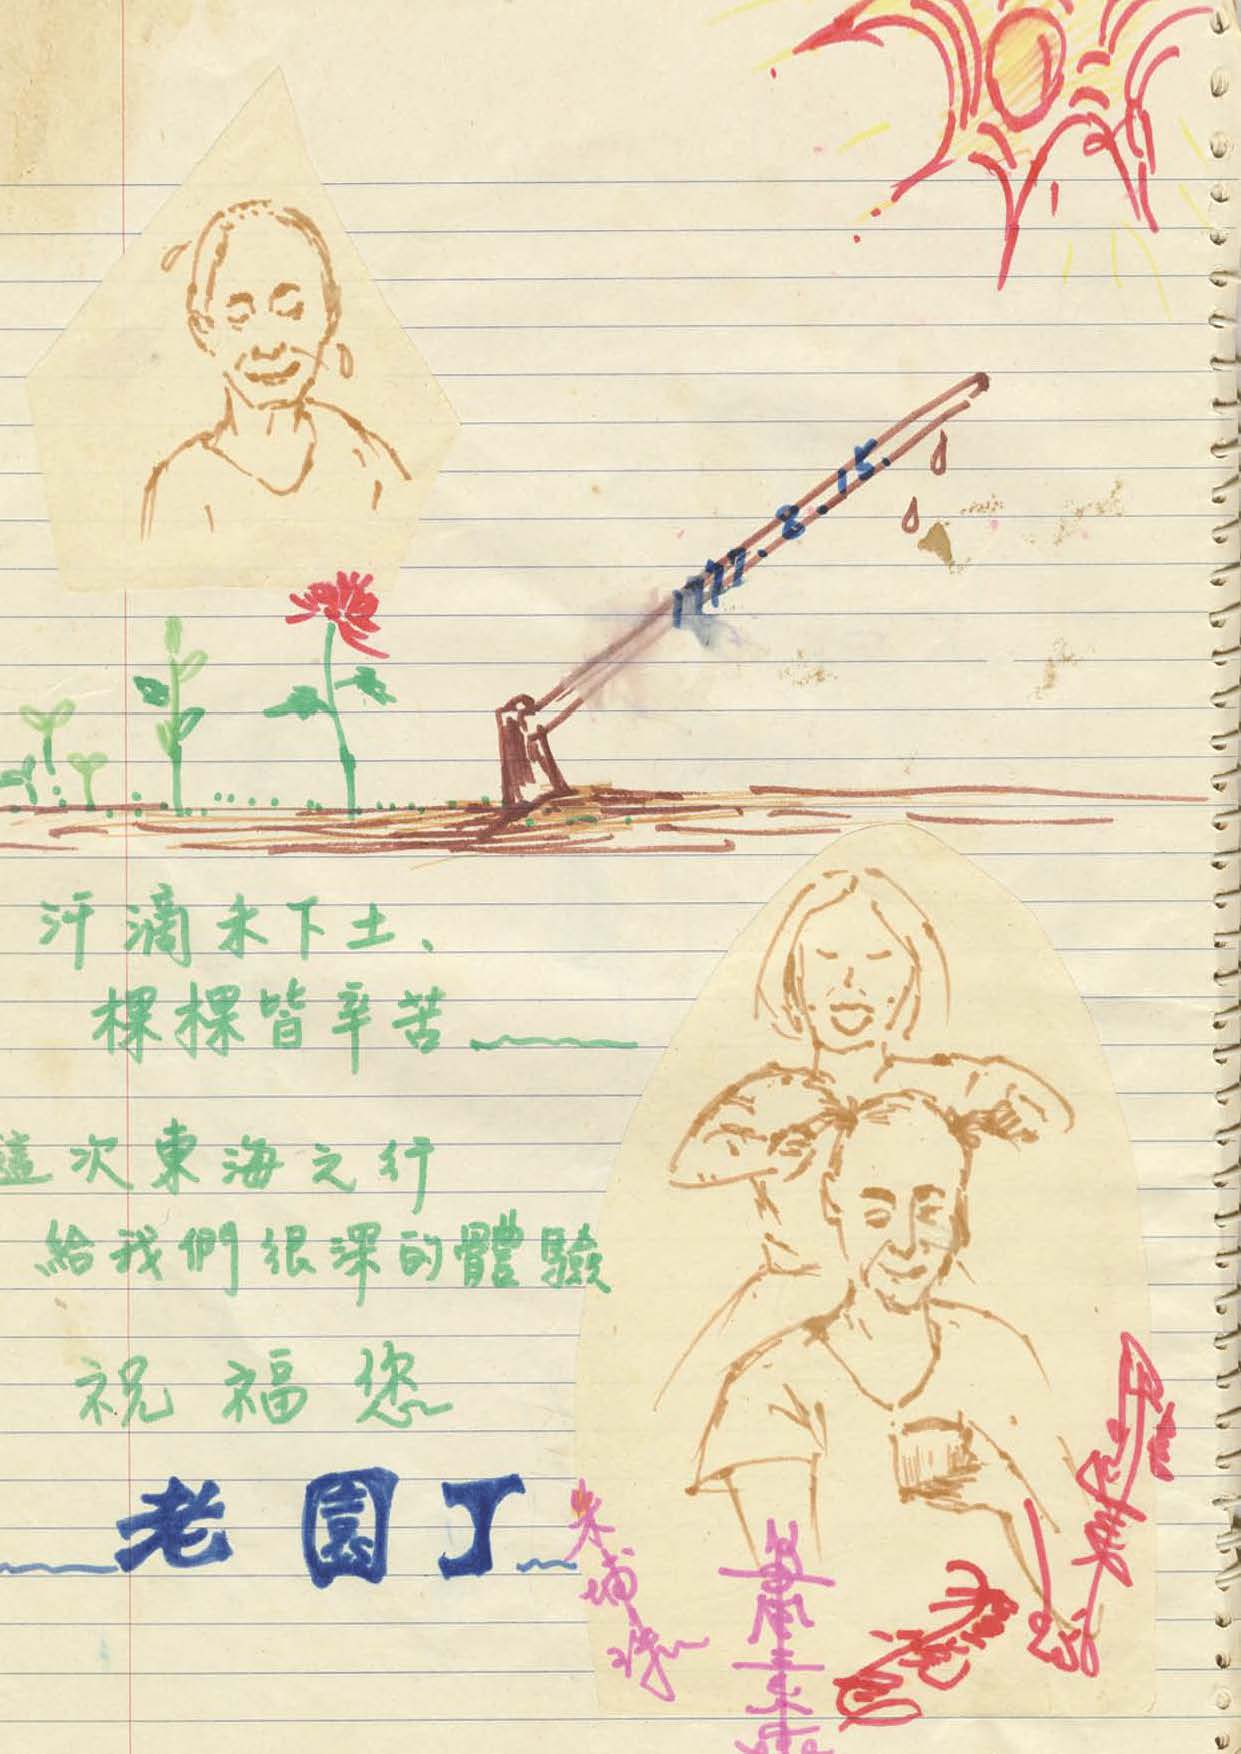 1977.8.15.
汗滴禾下土、
棵棵皆辛苦
這次東海之行
給我們很深的體驗
祝福您
老園丁